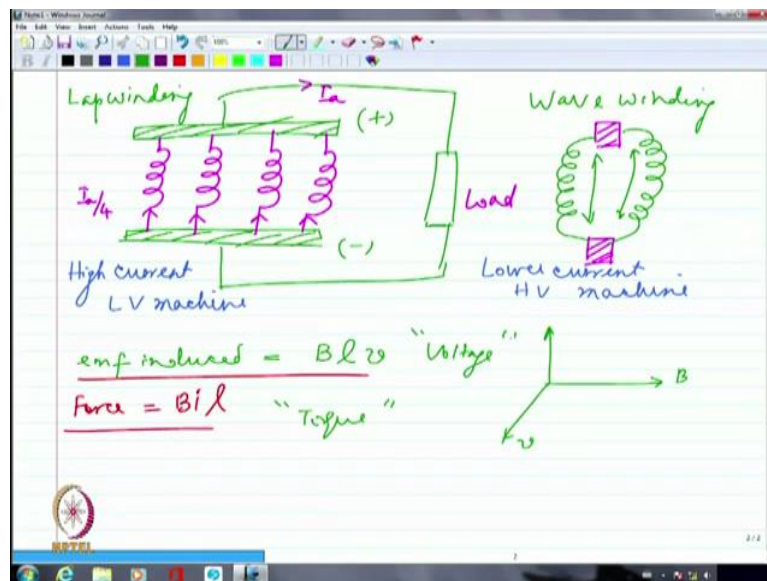 Note1 - Windows Journal
File Edit View Insert Actions Tools Help
100%
B I
Lap winding
Ia
(+)
Wave winding
Ia/4
Load
(-)
High current
LV machine
Lower current
HV machine
emf induced = B l v "Voltage"
Force = B i l "Torque"
B
v
NPTEL
2/2
2